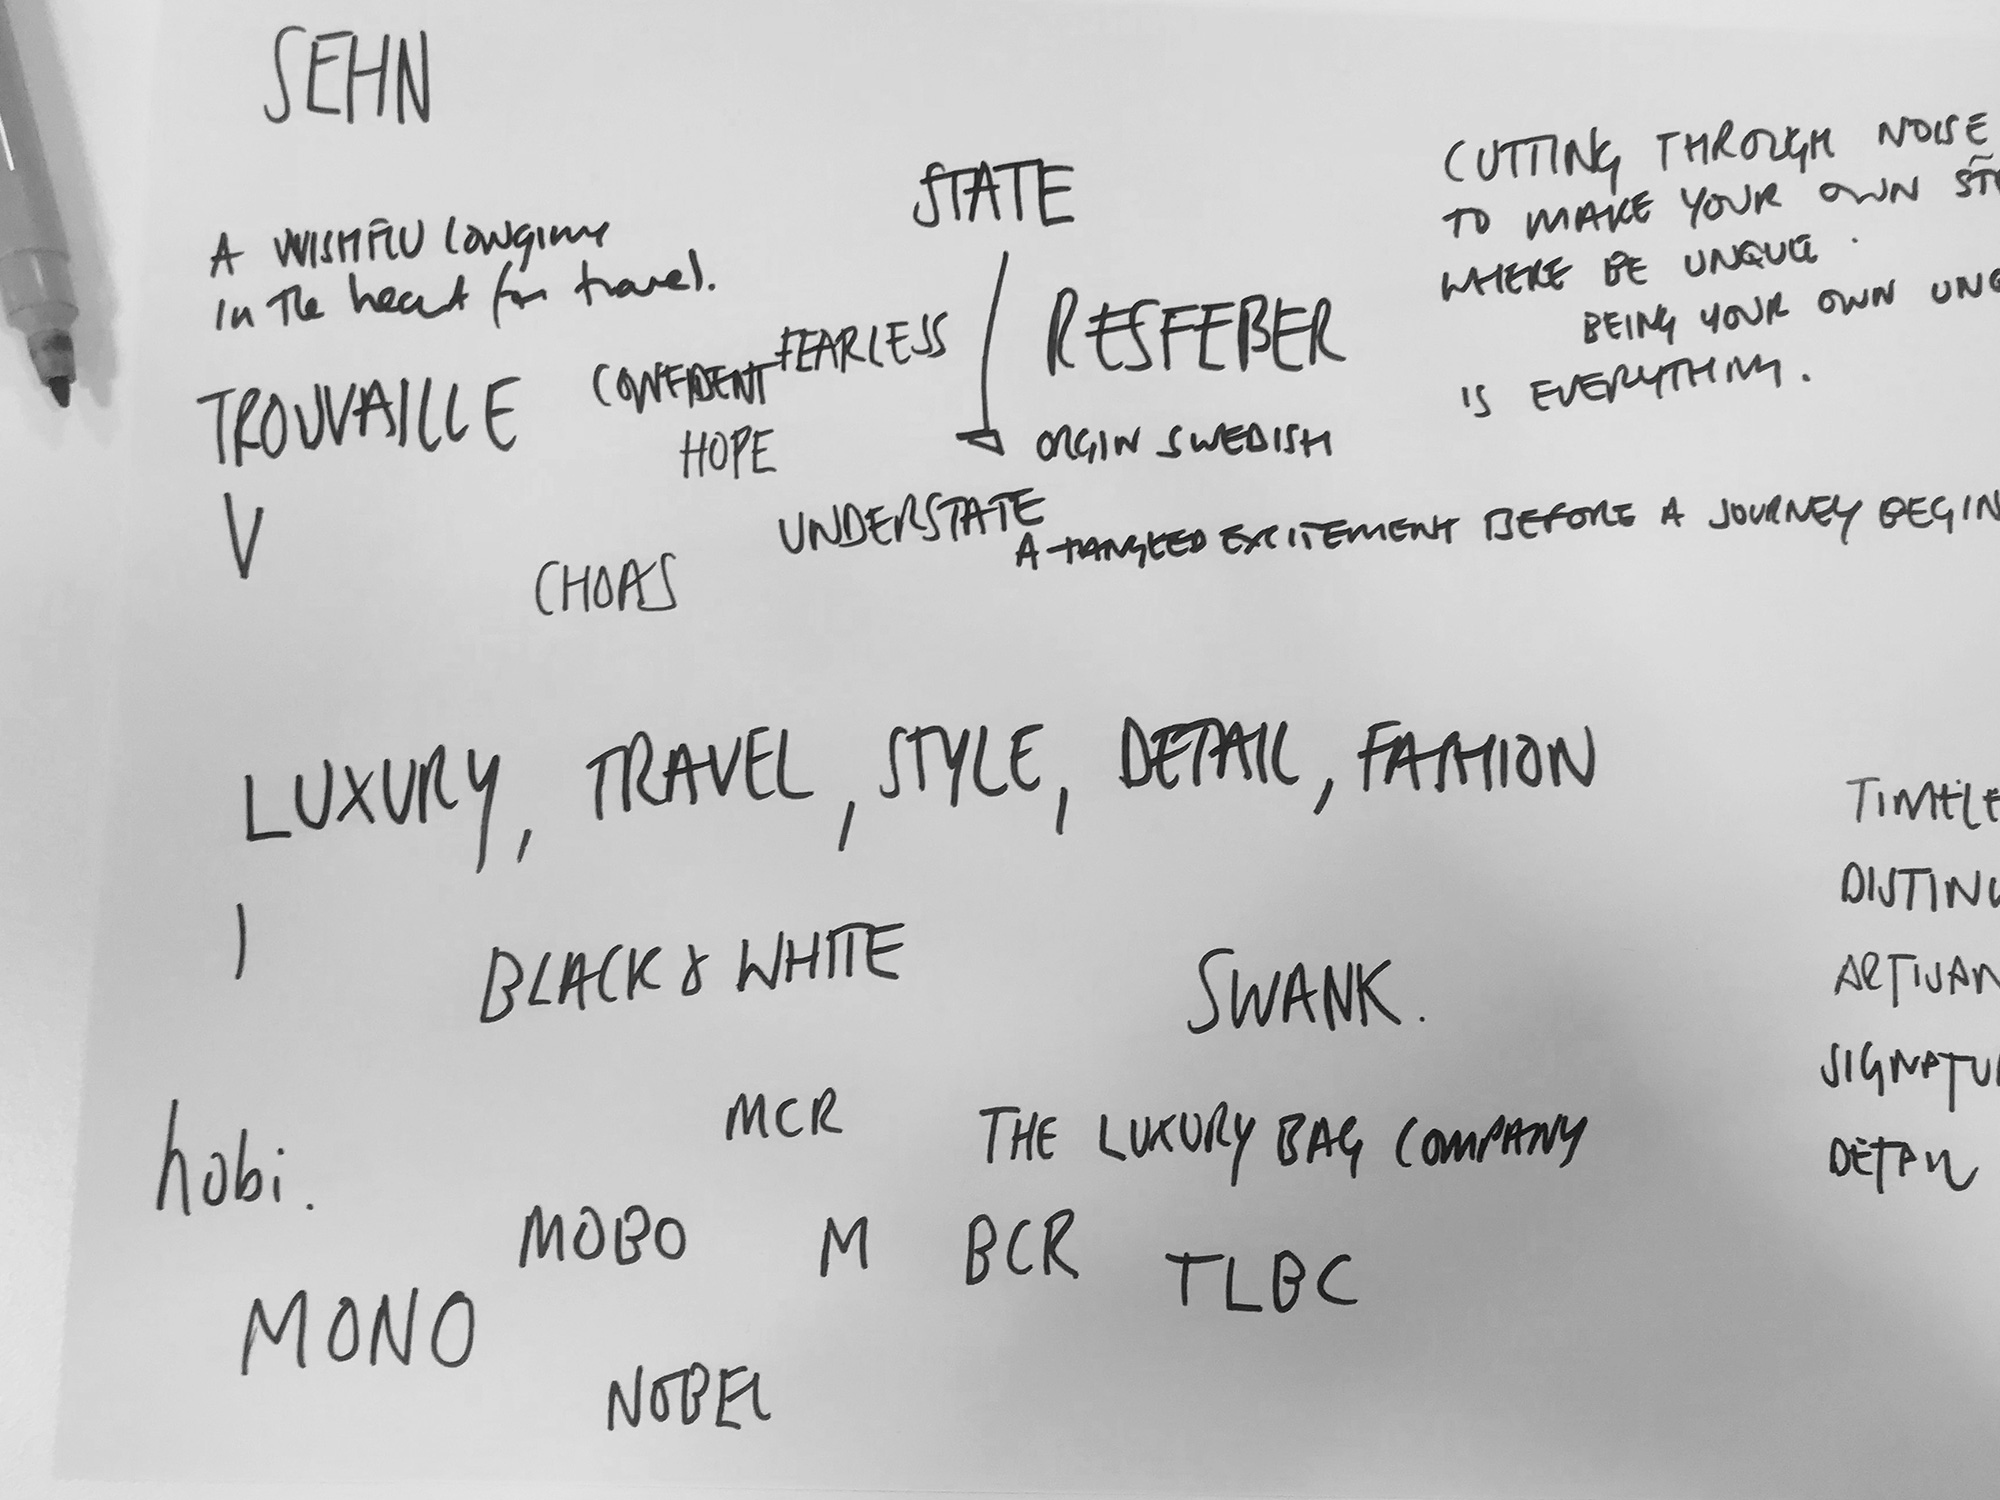 SEHN
STATE
CUTTING THROUGH NOISE
TO MAKE YOUR OWN
WHERE BE UNQUE.
BEING YOUR OWN
IS EVERYTHING.
A WISHFLU longing
in the heart for travel.
FEARLESS
RESFEBER
TROUVAILLE
CONFIDENT
HOPE
ORGIN SWEDISH
V
UNDERSTATE
A TANGLED EXCITEMENT BEFORE A JOURNEY BEGIN
CHOAS
LUXURY, TRAVEL, STYLE, DETAIL, FASHION
TIMELE
DISTINC
ARTISAN
SIGNATUR
DETAIL
I
BLACK & WHITE
SWANK.
MCR
THE LUXURY BAG COMPANY
hobi.
MOBO
M
BCR
TLBC
MONO
NOBEL